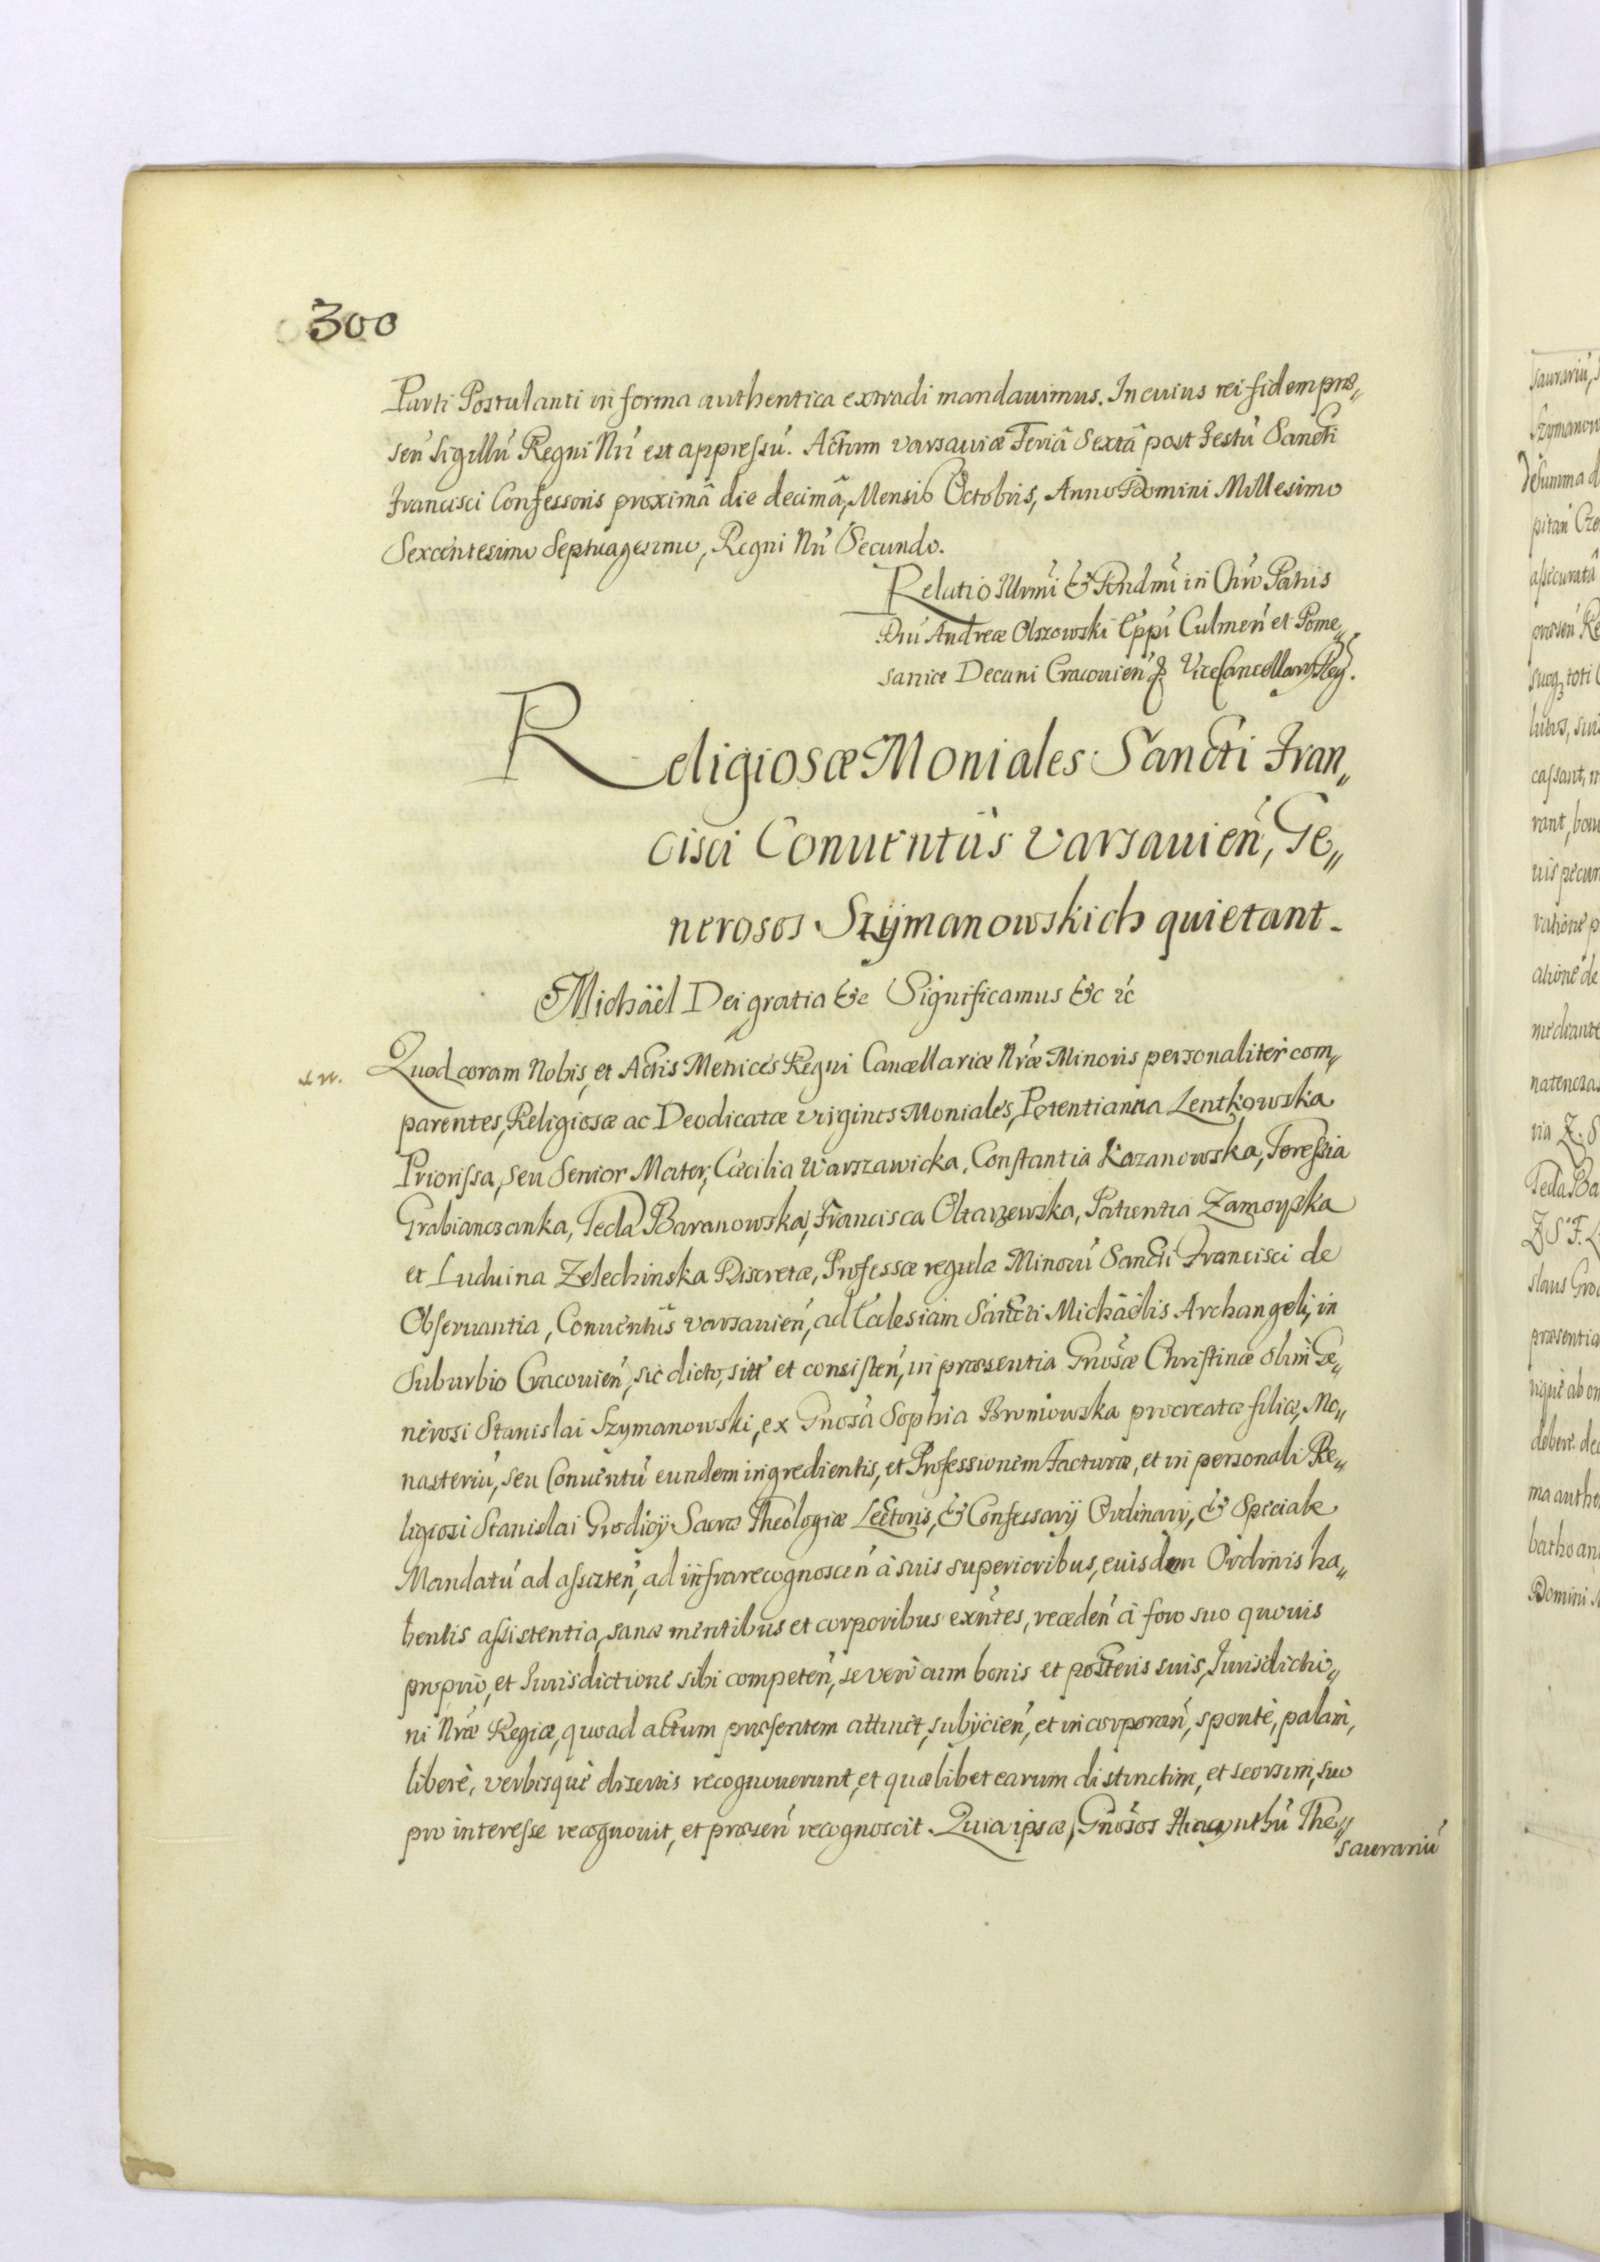 300
Parti Postulanti in forma authentica extradi mandavimus. In cuius rei fidem præ„
sen̄ Sigillū Regni Nrī est appressū. Actum Varsaviæ Feriâ Sextâ post Festū Sancti
Francisci Confessoris proximâ die decimâ, Mensis Octobris, Anno Domini Millesimo
Sexcentesimo Septuagesimo, Regni Nrī Secundo.
Relatio Illrmi & Rndmi in Chro Patris
Dni Andreæ Olszowski Eppi Culmen̄ et Pome„
saniæ Decani Cracovien̄ & ViceCancellarij Reg.
Religiosæ Moniales Sancti Fran„
cisci Conventûs Varsavien̄, Ge„
nerosos Szÿmanowskich quietant.
Michäel Dei gratia &c Significamus &c &c
Quod coram Nobis, et Actis Metrices Regni Cancellariæ Nræ Minoris personaliter com„
parentes, Religiosæ ac Deodicatæ virgines Moniales, Potentianna Lentkowska
Priorissa, seu Senior Mater, Cæcilia Warszawicka, Constantia Kazanowska, Teressia
Grabianczanka, Tecla Baranowska, Francisca Oltarzewska, Patientia Zamoyska
et Luduina Zelechinska Discretæ, Professæ regulæ Minorū Sancti Francisci de
Observantia, Conventûs Varsavien̄, ad Ecclesiam Sancti Michäelis Archangeli, in
Suburbio Cracovien̄, sic dicto, sitt et consisten̄, in præsentia Gnosæ Christinæ olim Ge„
nerosi Stanislai Szymanowski, ex Gnosa Sophia Broniowska procreatæ filiæ, Mo„
nasteriū, seu Conventū eundem ingredientis, et Professionem Facturæ, et in personali Re„
ligiosi Stanislai Grodicÿ Sacræ Theologiæ Lectoris, & Confessarij Ordinarij, & Speciale
Mandatū ad assisten̄, ad infrarecognoscen̄ â suis superioribus, euisdem Ordinis ha„
bentis assistentia, sanæ mentibus et corporibus exn̄tes, receden̄ â foro suo quovis
proprio, et Jurisdictione sibi competen̄, se verò cum bonis et posteris suis, Jurisdictio„
ni Nræ Regiæ, quoad actum præsentem attinet, subijcien̄, et incorporan̄, spontè, palàm,
liberè, verbisquè disertis recognoverunt, et quælibet earum distinctim, et seorsim, suo
pro interesse recognovit, et præsen̄ recognoscit. Quia ipsæ, Gnosos Hiacynthū The„
saurariū